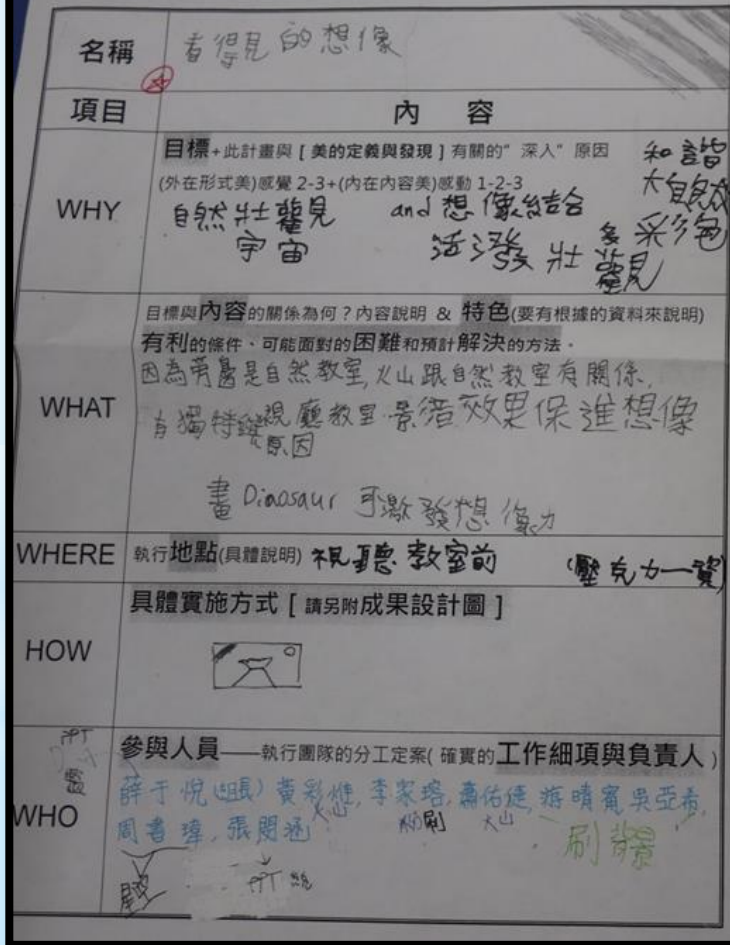 名稱 看得見的想像
項目 內 容
WHY
目標+此計畫與 [ 美的定義與發現 ] 有關的"深入"原因
(外在形式美)感覺 2-3+(內在內容美)感動 1-2-3
和諧
大自然
自然壯觀 and 想像結合
多彩色
宇宙 活潑 壯觀
WHAT
目標與內容的關係為何？內容說明 & 特色(要有根據的資料來說明)
有利的條件、可能面對的困難和預計解決的方法。
因為旁邊是自然教室,火山跟自然教室有關係,
有獨特 視廳教室 效果保進想像
原因
畫 Dinosaur 可激發想像力
WHERE 執行地點(具體說明) 視聽教室前 (壓克力
HOW
具體實施方式 [ 請另附成果設計圖 ]
WHO
參與人員——執行團隊的分工定案( 確實的工作細項與負責人 )
薛于悅(組長) 黃彩惟, 李家瑢, 蕭佑倢, 吳亞希,
周書瑋, 張閔涵 火山 粉刷 火山
刷背景
PPT